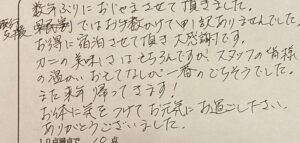 数年ぶりにおじゃまさせて頂きました。
旅行支援 県民割ではお手数かけて申し訳ありませんでした。
お得に宿泊させて頂き大感謝です。
カニの美味しさはもちろんですが、スタッフの皆様
の温かいおもてなしが一番のごちそうでした。
また来年帰ってきます!
お体に気をつけてお元気にお過ごし下さい。
ありがとうございました。
10点満点で 10点